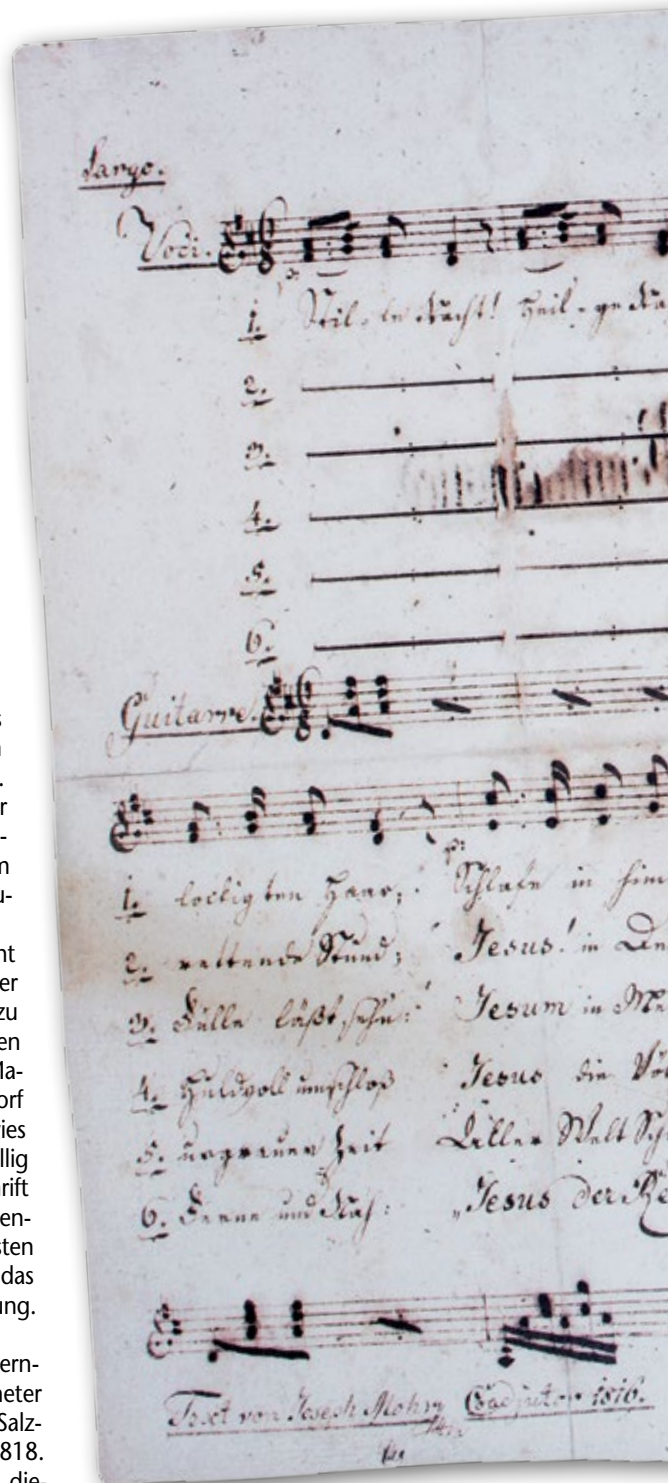 Largo.
Voci.
1. Stil-le Nacht! Heil-ge
2.
3.
4.
5.
6.
Guitarre.
1. lockigten Haar; Schlafe in
2. rettende Stund; Jesus! in
3. Fülle läßt sehn: Jesum in
4. Huldvoll umschloß Jesus die
5. urgrauer Zeit Aller Welt
6. Ferne und Näh: „Jesus der
Text von Joseph Mohr Coadjutor 1816.
r
-
u-
nt
er
zu
en
Ma-
orf
ies
llig
rift
en-
sten
das
ung.
ern-
neter
Salz-
818.
die-